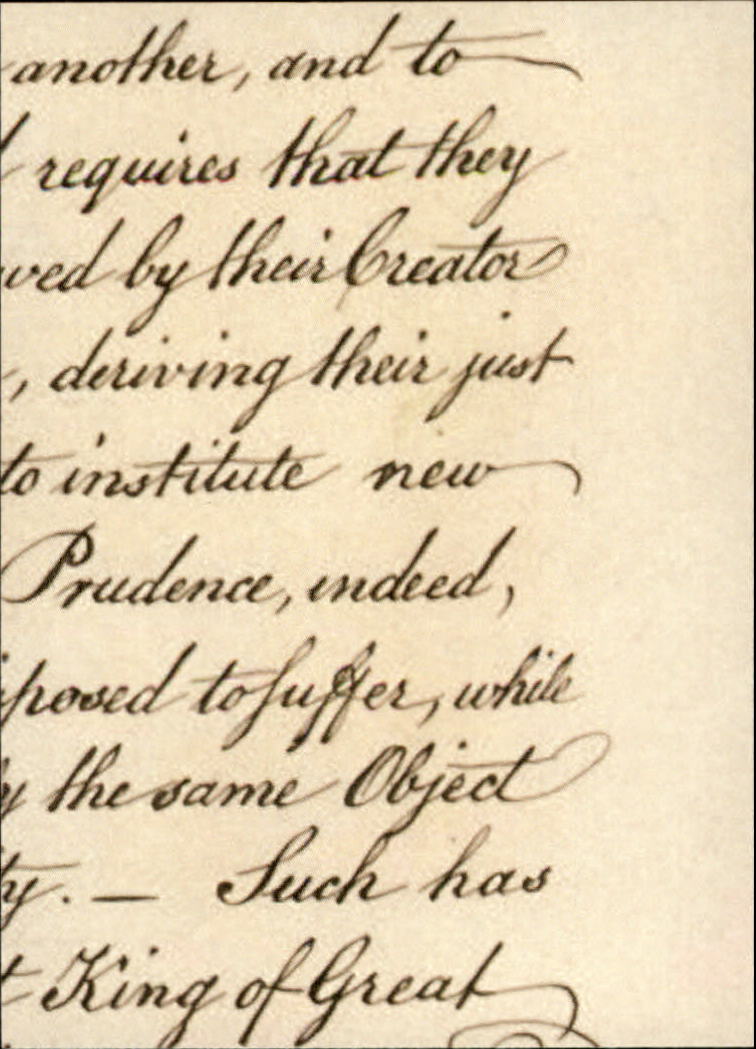 another, and to
requires that they
wed by their Creator
, deriving their just
to institute new
Prudence, indeed,
posed to suffer, while
y the same Object
ty. — Such has
t King of Great